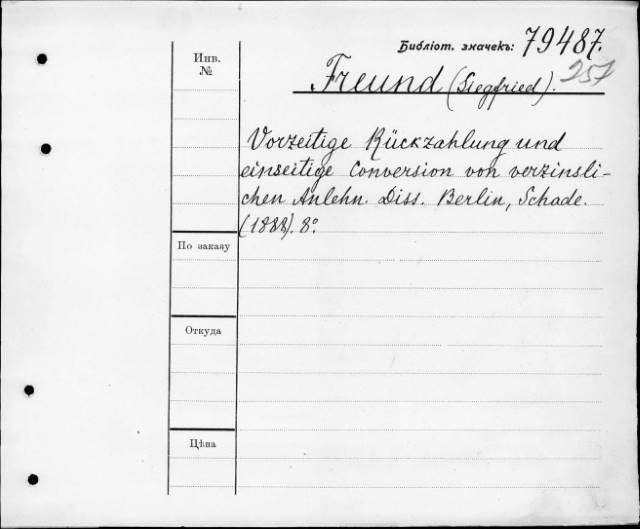 Библіот. значекъ: 79487.
257
Инв.
№
Freund (Siegfried).
Vorzeitige Rückzahlung und
einseitige Conversion von verzinsli-
chen Anlehn. Diss. Berlin, Schade.
(1888). 8°.
По заказу
Откуда
Цѣна